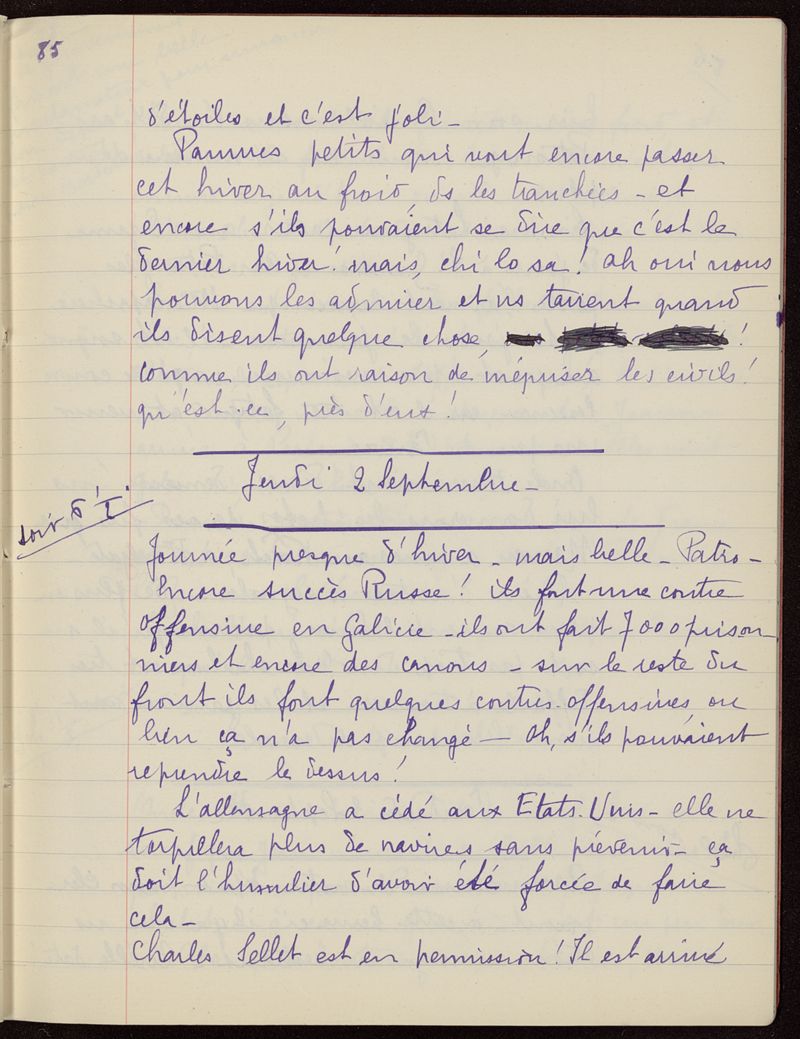 85
d'étoiles et c'est joli –
Pauvres petits qui vont encore passer
cet hiver au froid, ds les tranchées – et
encore s'ils pouvaient se dire que c'est le
dernier hiver! mais, chi lo sa! Ah oui nous
pouvons les admirer et ns taire quand
ils disent quelque chose, !
comme ils ont raison de mépriser les civils!
qu'est-ce, près d'eux!
Jeudi 2 Septembre –
soir d'I.
Journée presque d'hiver – mais belle – Patro –
Encore succès Russe! ils font une contre
offensive en Galicie – ils ont fait 7000 prison-
niers et encore des canons – sur le reste du
front ils font quelques contres-offensives, ou
bien ça n'a pas changé – Oh, s'ils pouvaient
reprendre le dessus!
L'allemagne a cédé aux Etats-Unis – elle ne
torpillera plus de navires sans prévenir – ça
doit l'humilier d'avoir été forcée de faire
cela –
Charles Sellet est en permission! Il est arrivé